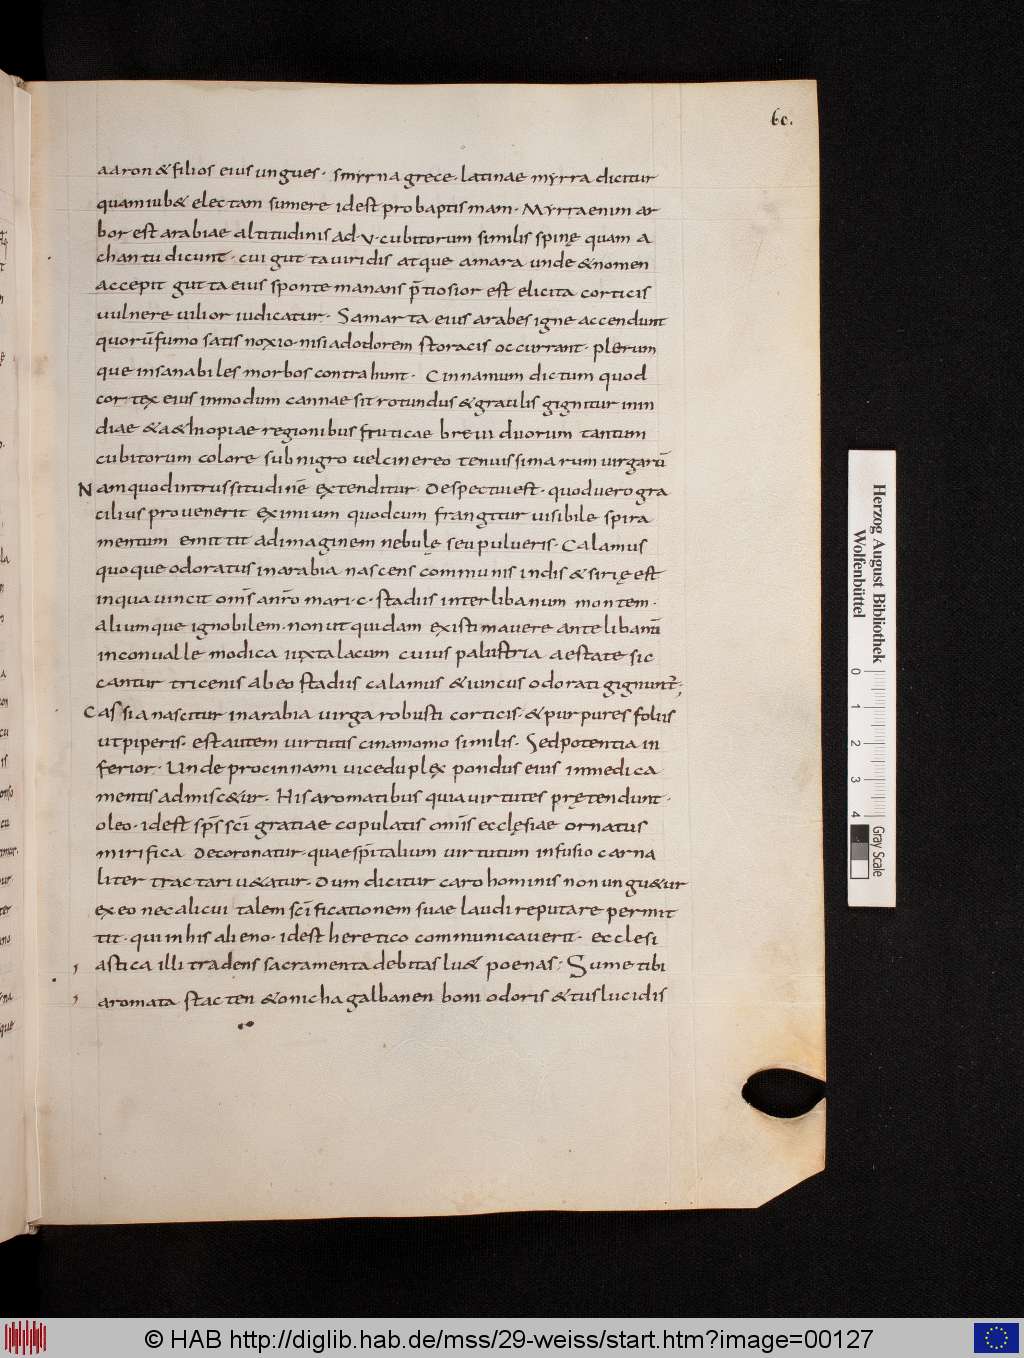 60.
aaron & filios eius ungues· smyrna grece· latinae myrra dicitur
quam iub& electam sumere id est pro baptismam· Myrra enim ar
bor est arabiae altitudinis ad·v·cubitorum similis spinę quam a
chantu dicunt̄· cui gutta viridis atque amara unde & nomen
accepit gutta eius sponte manans p̄tiosior est elicita corticis
vulnere vilior iudicatur· Samarta eius arabes igne accendunt
quorū fumo satis noxio· nisi ad odorem storacis occurrant· plerum
que insanabiles morbos contrahunt· Cinnamum dictum quod
cortex eius inmodum cannae sit rotundus & gratilis gignitur inin
diae & a&hiopiae regionibus frutice brevi duorum tantum
cubitorum colore subnigro vel cinereo tenuissimarum virgarū
Nam quod intrussitudinē extenditur· Despectui est· quod vero gra
cilius provenerit eximium quod cum frangitur visibile spira
mentum emittit ad imaginem nebulę seu pulveris· Calamus
quoque odoratus in arabia nascens communis indis & sirię est
in qua vincit om̄s an̄ro mari·c·stadiis inter libanum montem·
aliumque ignobilem· non ut quidam existimavere ante libanū
in convalle modica iuxta lacum cuius palustria aestate sic
cantur tricenis ab eo stadiis calamus & iuncus odorati gignunt̄;
Cassia nascitur in arabia virga robusti corticis· & purpures foliis
ut piperis· est autem virtutis cinamomo similis· Sed potentia in
ferior· Unde pro cinnami vice duplex pondus eius in medica
mentis admisc&ur· His aromatibus quia virtutes prętendunt·
oleo· id est sp̄s sc̄i gratiae copulatis om̄is ecclęsiae ornatus
mirifica decoronatur· quae sp̄italium virtutum infusio carna
liter tractari u&atur· Dum dicitur caro hominis non ungu&ur
ex eo nec alicui talem sc̄ificationem suae laudi reputare permit
tit· qui in his alieno· id est heretico communicaverit· ecclesi
astica illi tradens sacramenta debitas lu& poenas; Sume tibi
aromata stacten & onicha galbanen boni odoris & tus lucidis
Herzog August Bibliothek
Wolfenbüttel
0 1 2 3 4
Gray Scale
© HAB http://diglib.hab.de/mss/29-weiss/start.htm?image=00127